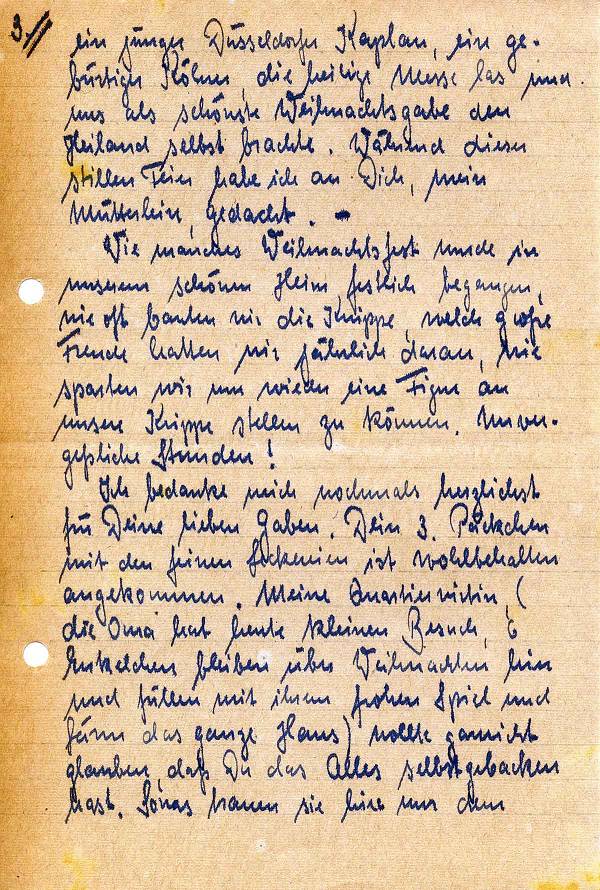 3.
ein junger Düsseldorfer Kaplan, ein ge-
bürtiger Kölner, die heilige Messe las und
uns als schönste Weihnachtsgabe den
Heiland selbst brachte. Während dieser
stillen Feier habe ich an Dich, mein
Mütterlein, gedacht. –
Wie manches Weihnachtsfest wurde in
unserem schönen Heim festlich begangen,
wie oft bauten wir die Krippe, welch große
Freude hatten wir jährlich daran, wie
sparten wir um wieder eine Figur an
unsere Krippe stellen zu können. Unver-
geßliche Stunden!
Ich bedanke mich nochmals herzlichst
für Deine lieben Gaben. Dein 3. Päckchen
mit den feinen Leckereien ist wohlbehalten
angekommen. Meine Quartierwirtin, (
die Oma hat heute kleinen Besuch, 6
Enkelchen bleiben über Weihnachten hier
und füllen mit ihrem frohen Spiel und
Lärm das ganze Haus) wollte garnicht
glauben, daß Du das Alles selbstgebacken
hast. Sowas trauen sie hier nur dem